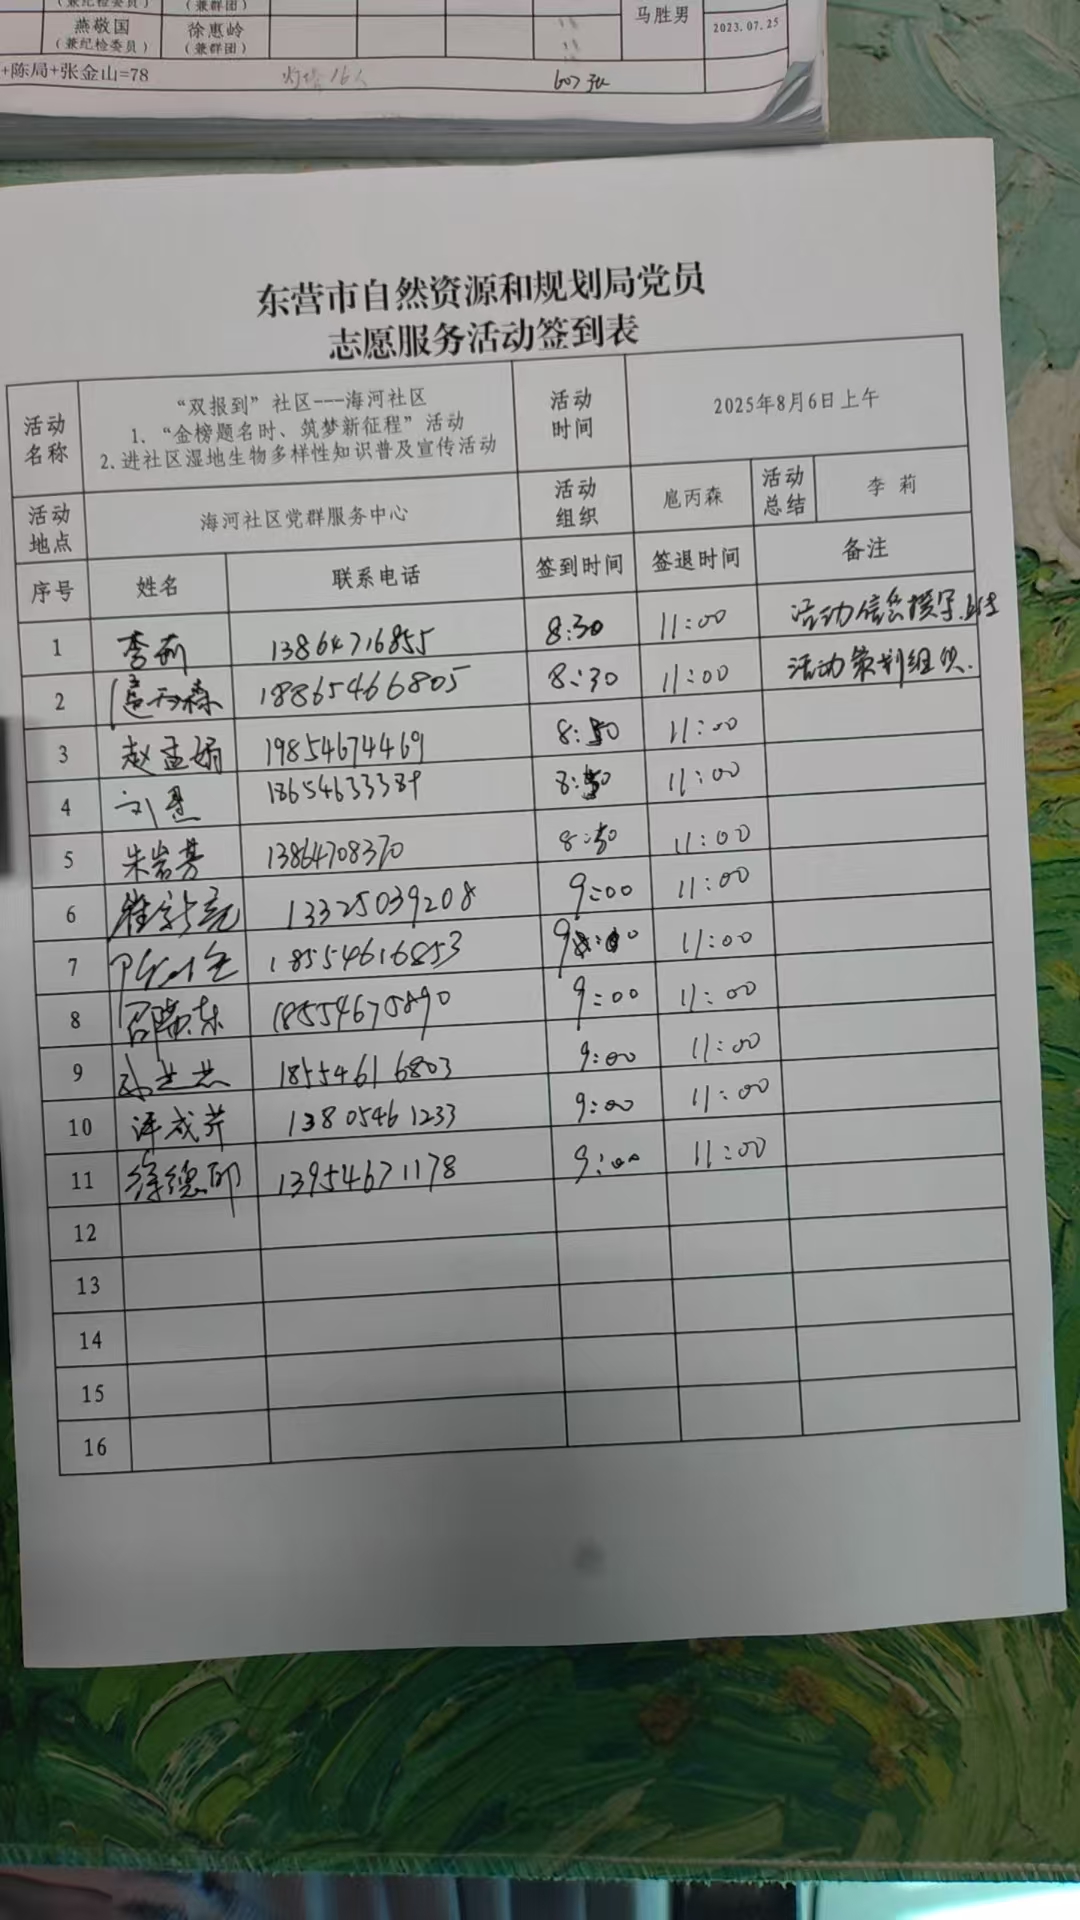 燕敬国 徐惠岭 马胜男 2023.07.25
(兼纪检委员) (兼群团)
+陈局+张金山=78 16人 607张
东营市自然资源和规划局党员
志愿服务活动签到表
活动名称 “双报到”社区---海河社区 活动时间 2025年8月6日上午
1.“金榜题名时、筑梦新征程”活动
2.进社区湿地生物多样性知识普及宣传活动
活动地点 海河社区党群服务中心 活动组织 扈丙森 活动总结 李莉
序号 姓名 联系电话 签到时间 签退时间 备注
1 李莉 13864716855 8:30 11:00 活动信息撰写
2 扈丙森 18865466805 8:30 11:00 活动策划组织.
3 赵孟娟 19854674469 8:50 11:00
4 刘 18654633389 8:50 11:00
5 朱岩芳 13864708370 8:50 11:00
6 崔 13325039208 9:00 11:00
7 18554616853 9:00 11:00
8 18554675890 9:00 11:00
9 18554616803 9:00 11:00
10 成芹 13805461233 9:00 11:00
11 徐德 13954671178 9:00 11:00
12
13
14
15
16